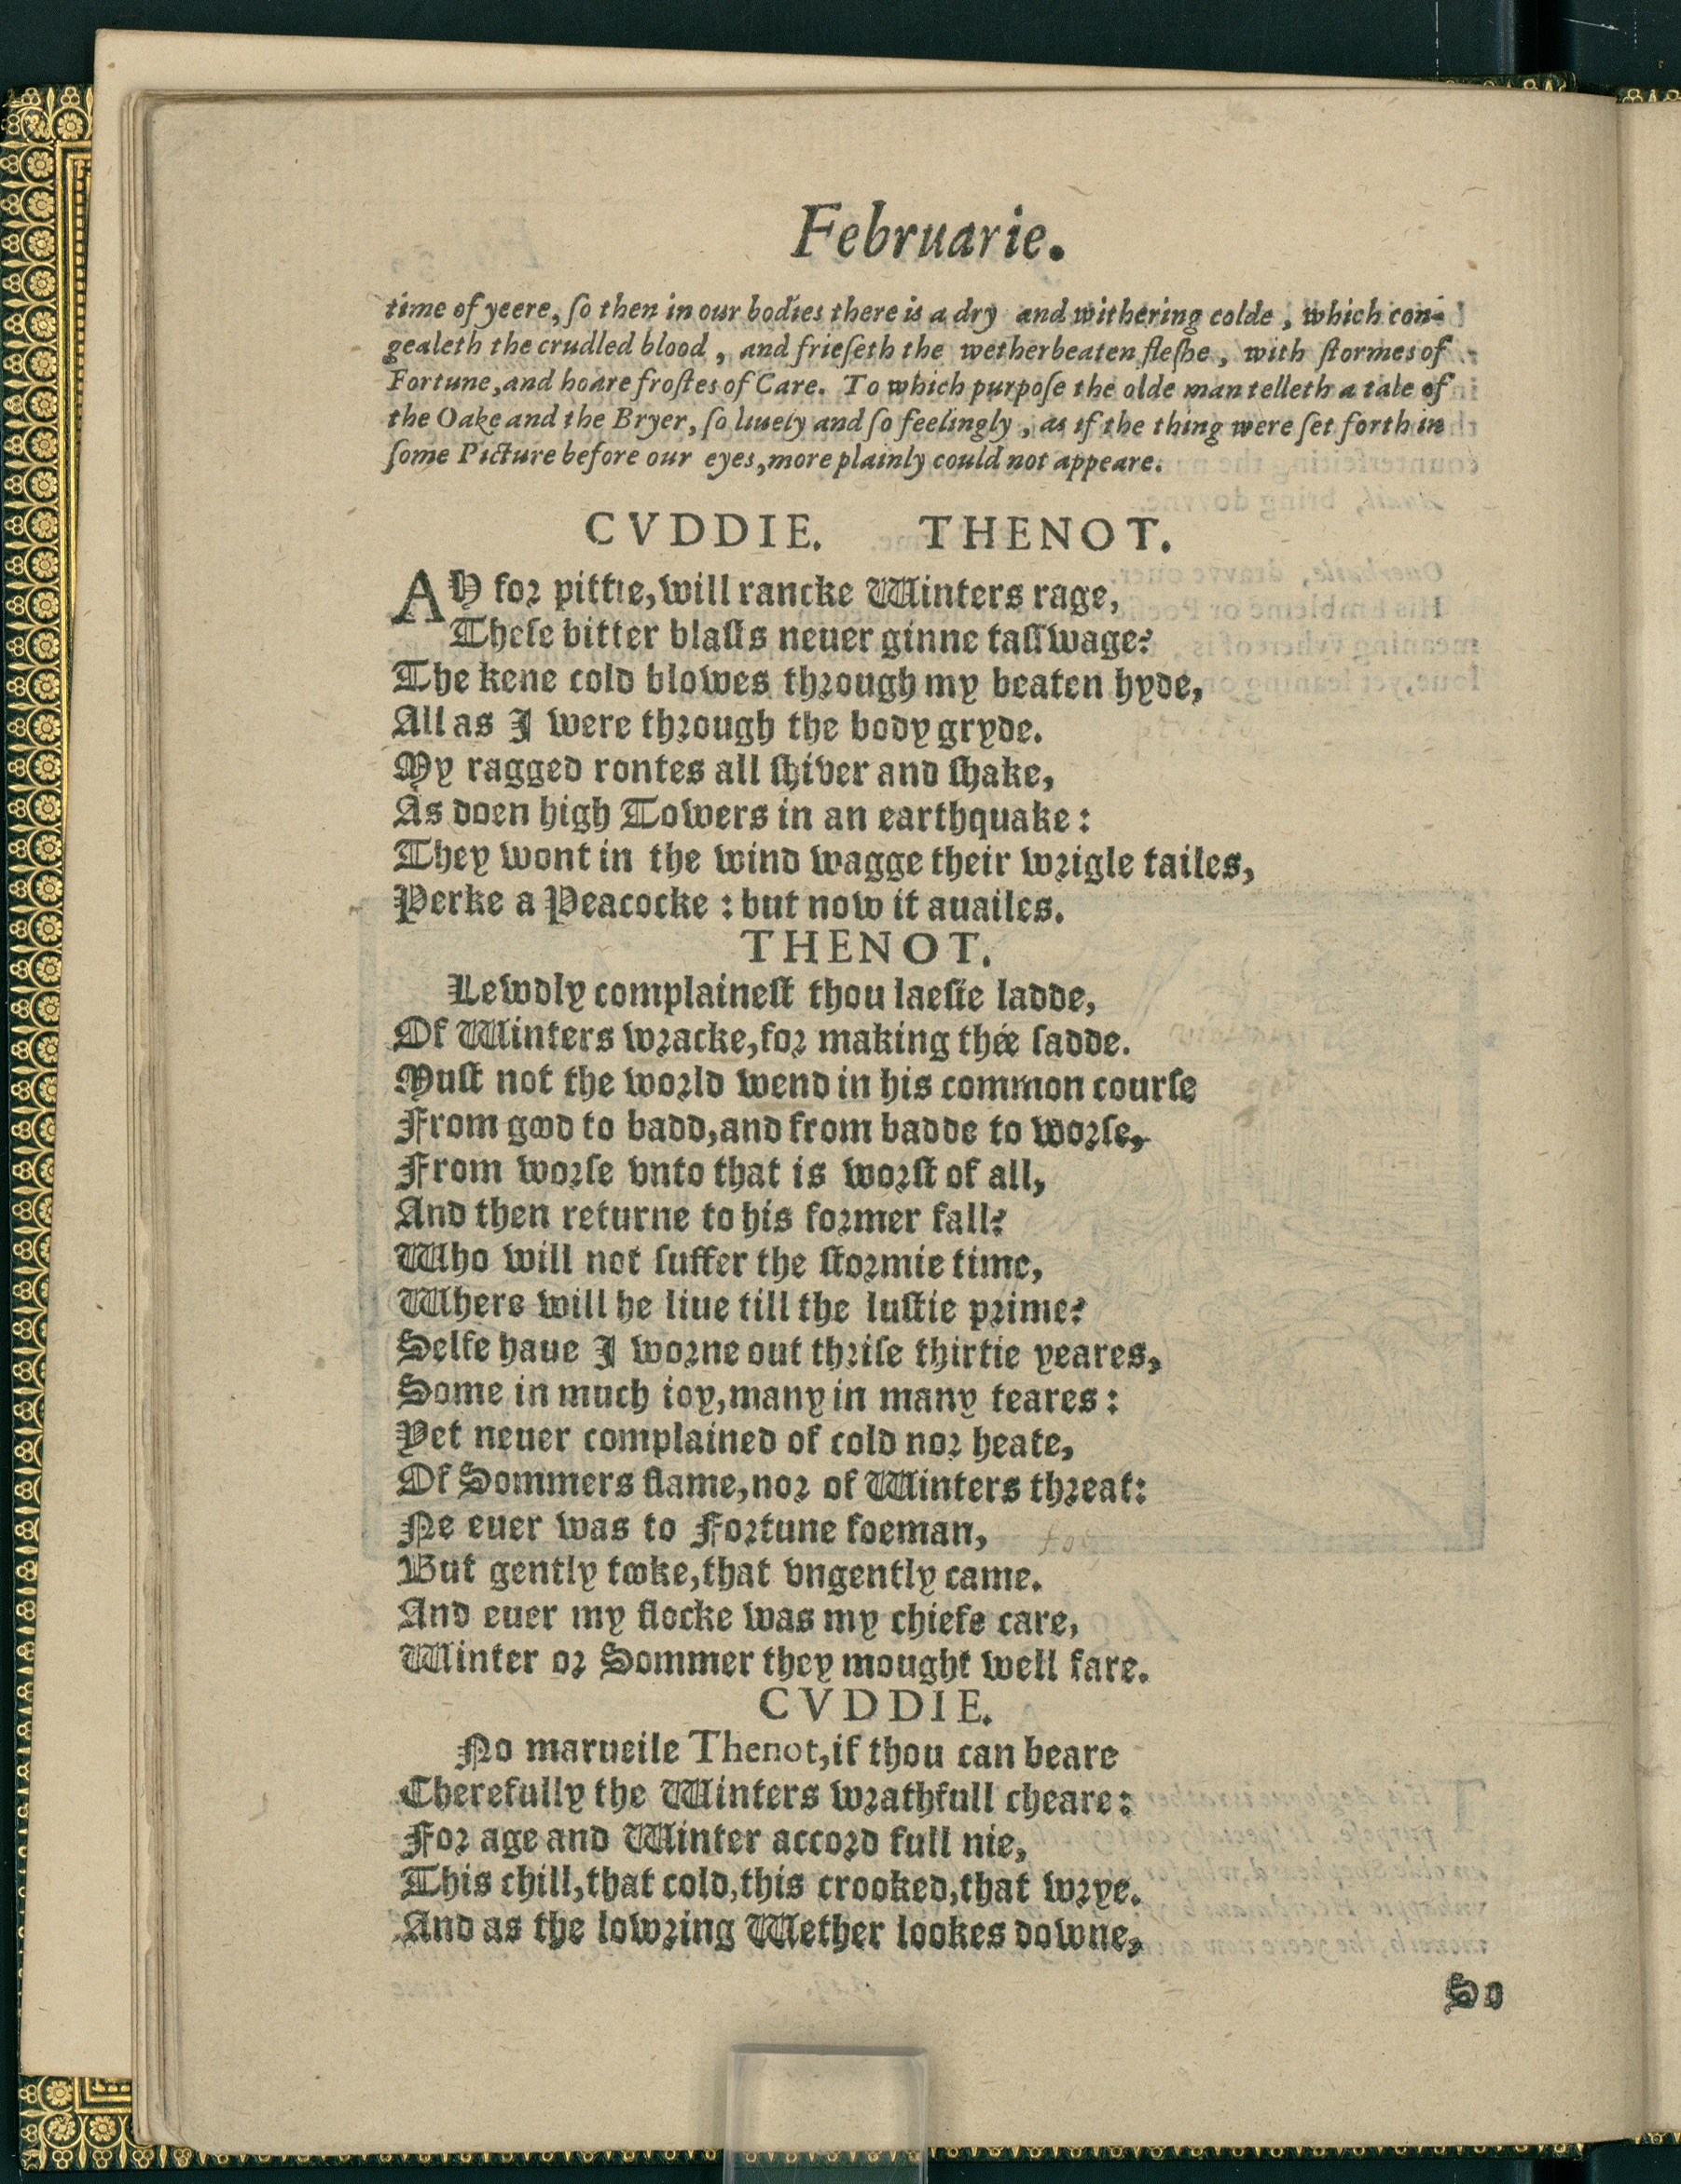 Februarie.
time of yeere, ſo then in our bodies there is a dry and withering colde, which con-
gealeth the crudled blood, and frieſeth the wetherbeaten fleſhe, with ſtormes of
Fortune, and hoare froſtes of Care. To which purpoſe the olde man telleth a tale of
the Oake and the Bryer, ſo liuely and ſo feelingly, as if the thing were ſet forth in
ſome Picture before our eyes, more plainly could not appeare.
CVDDIE. THENOT.
AY for pittie, will rancke Winters rage,
Theſe bitter blaſts neuer ginne taſſwage?
The kene cold blowes through my beaten hyde,
All as I were through the body gryde.
My ragged rontes all ſhiver and ſhake,
As doen high Towers in an earthquake:
They wont in the wind wagge their wrigle tailes,
Perke a Peacocke: but now it auailes.
THENOT.
Lewdly complaineſt thou laeſie ladde,
Of Winters wracke, for making thée ſadde.
Muſt not the world wend in his common courſe
From good to badd, and from badde to worſe,
From worſe vnto that is worſt of all,
And then returne to his former fall?
Who will not ſuffer the ſtormie time,
Where will he liue till the luſtie prime?
Selfe haue I worne out thriſe thirtie yeares,
Some in much ioy, many in many teares:
Yet neuer complained of cold nor heate,
Of Sommers flame, nor of Winters threat:
Ne euer was to Fortune foeman,
But gently tooke, that vngently came.
And euer my flocke was my chiefe care,
Winter or Sommer they mought well fare.
CVDDIE.
No marueile Thenot, if thou can beare
Cherefully the Winters wrathfull cheare:
For age and Winter accord full nie,
This chill, that cold, this crooked, that wrye.
And as the lowring Wether lookes downe,
So